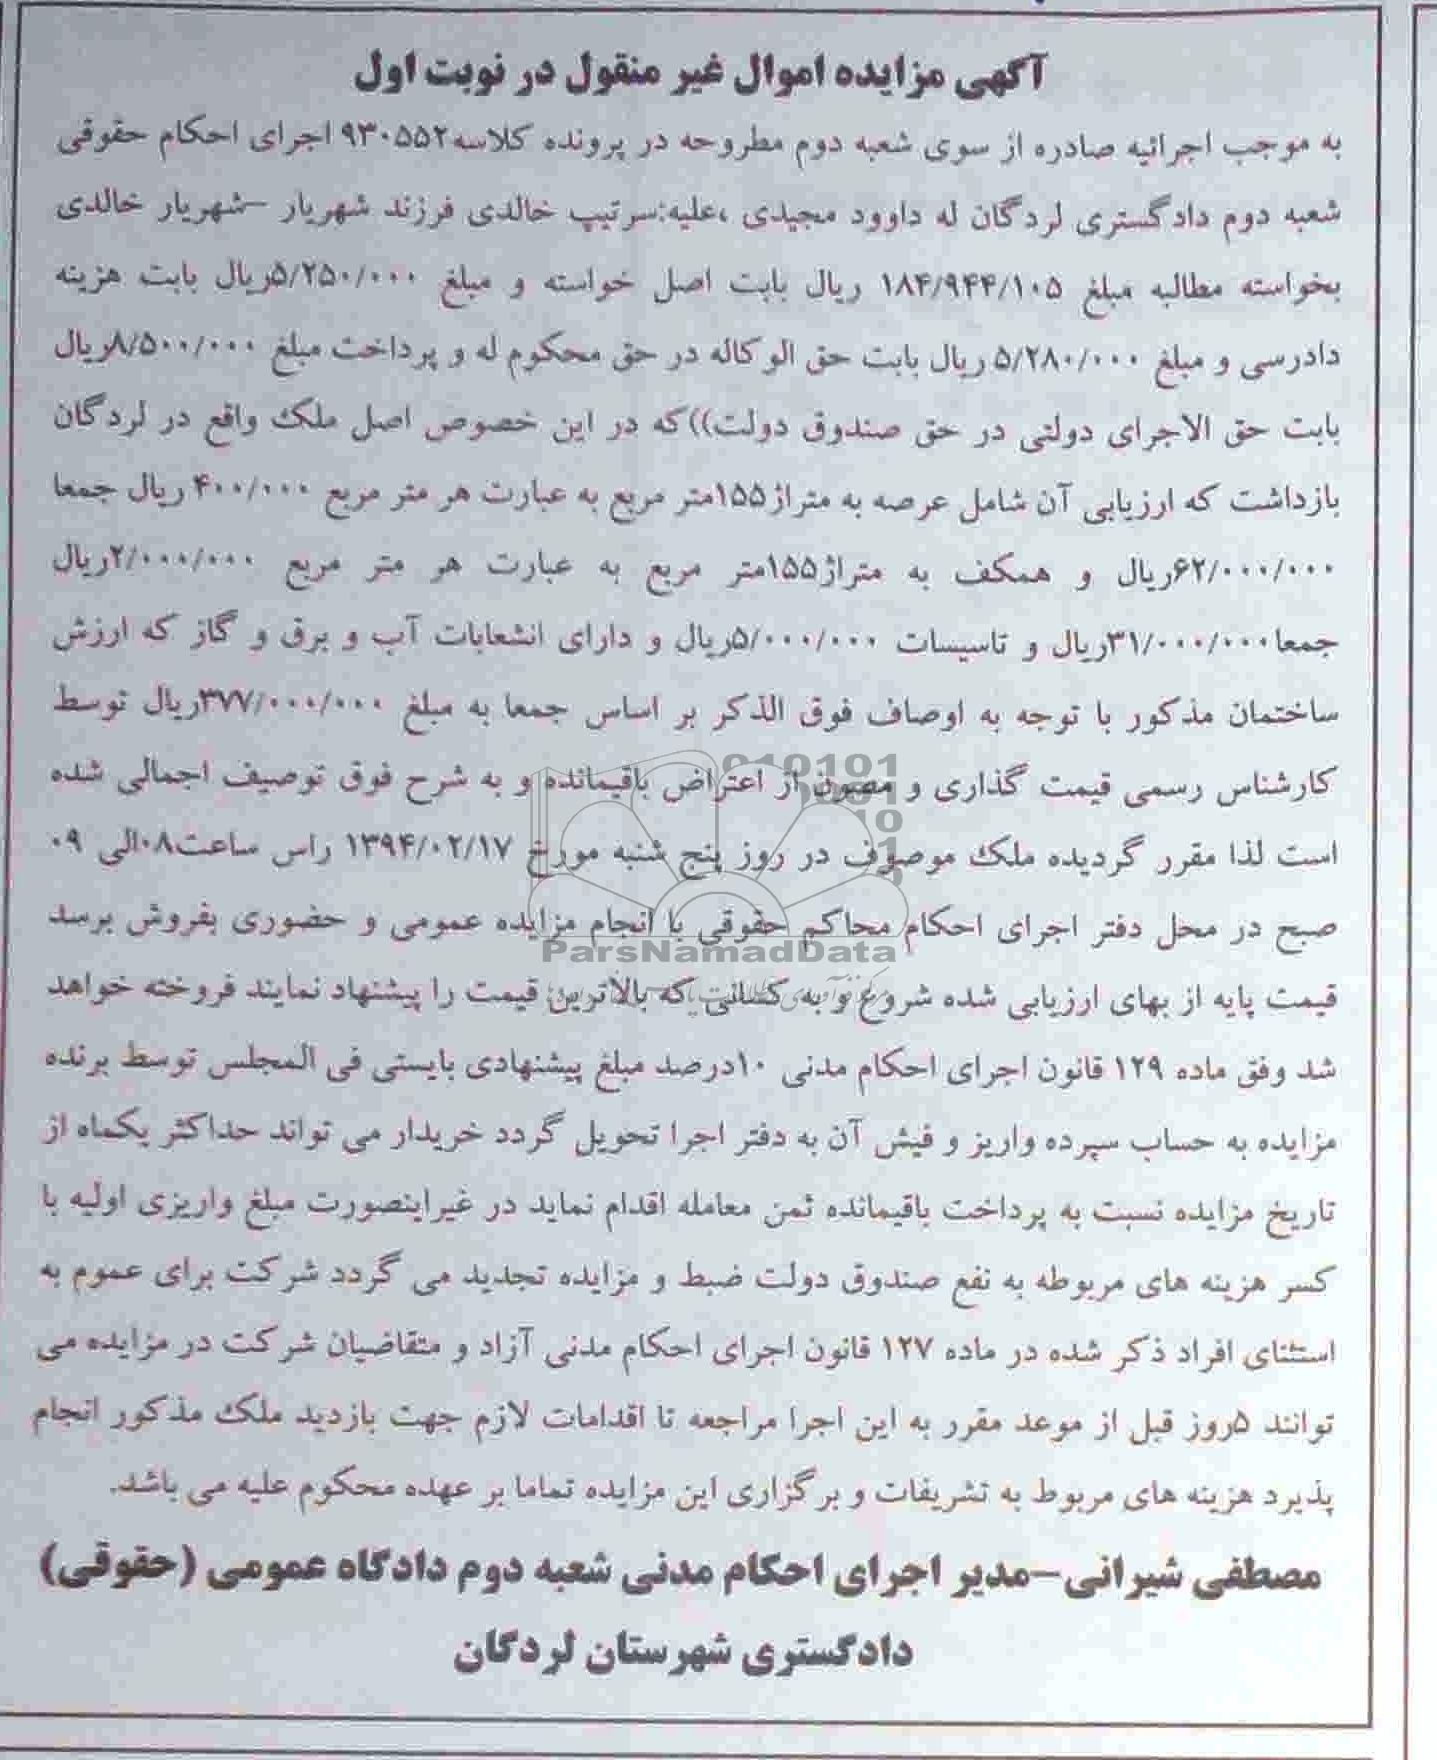 آگهی مزایده اموال غیر منقول در نوبت اول
به موجب اجرائیه صادره از سوی شعبه دوم مطروحه در پرونده کلاسه۹۳۰۵۵۲ اجرای احکام حقوقی
شعبه دوم دادگستری لردگان له داوود مجیدی ،علیه:سرتیپ خالدی فرزند شهریار –شهریار خالدی
بخواسته مطالبه مبلغ ۱۸۴/۹۴۴/۱۰۵ ریال بابت اصل خواسته و مبلغ ۵/۲۵۰/۰۰۰ریال بابت هزینه
دادرسی و مبلغ ۵/۲۸۰/۰۰۰ ریال بابت حق الوکاله در حق محکوم له و پرداخت مبلغ ۸/۵۰۰/۰۰۰ریال
بابت حق الاجرای دولتی در حق صندوق دولت))که در این خصوص اصل ملک واقع در لردگان
بازداشت که ارزیابی آن شامل عرصه به متراژ۱۵۵متر مربع به عبارت هر متر مربع ۴۰۰/۰۰۰ ریال جمعا
۶۲/۰۰۰/۰۰۰ریال و همکف به متراژ۱۵۵متر مربع به عبارت هر متر مربع ۲/۰۰۰/۰۰۰ریال
جمعا۳۱/۰۰۰/۰۰۰ریال و تاسیسات ۵/۰۰۰/۰۰۰ریال و دارای انشعابات آب و برق و گاز که ارزش
ساختمان مذکور با توجه به اوصاف فوق الذکر بر اساس جمعا به مبلغ ۳۷۷/۰۰۰/۰۰۰ریال توسط
کارشناس رسمی قیمت گذاری و مصون از اعتراض باقیمانده و به شرح فوق توصیف اجمالی شده
است لذا مقرر گردیده ملک موصوف در روز پنج شنبه مورخ ۱۳۹۴/۰۲/۱۷ راس ساعت۰۸الی ۰۹
صبح در محل دفتر اجرای احکام محاکم حقوقی با انجام مزایده عمومی و حضوری بفروش برسد
ParsNamadData
قیمت پایه از بهای ارزیابی شده شروع و به کسانی که بالاترین قیمت را پیشنهاد نمایند فروخته خواهد
شد وفق ماده ۱۲۹ قانون اجرای احکام مدنی ۱۰درصد مبلغ پیشنهادی بایستی فی المجلس توسط برنده
مزایده به حساب سپرده واریز و فیش آن به دفتر اجرا تحویل گردد خریدار می تواند حداکثر یکماه از
تاریخ مزایده نسبت به پرداخت باقیمانده ثمن معامله اقدام نماید در غیراینصورت مبلغ واریزی اولیه با
کسر هزینه های مربوطه به نفع صندوق دولت ضبط و مزایده تجدید می گردد شرکت برای عموم به
استثنای افراد ذکر شده در ماده ۱۲۷ قانون اجرای احکام مدنی آزاد و متقاضیان شرکت در مزایده می
توانند ۵روز قبل از موعد مقرر به این اجرا مراجعه تا اقدامات لازم جهت بازدید ملک مذکور انجام
پذیرد هزینه های مربوط به تشریفات و برگزاری این مزایده تماما بر عهده محکوم علیه می باشد.
مصطفی شیرانی–مدیر اجرای احکام مدنی شعبه دوم دادگاه عمومی (حقوقی)
دادگستری شهرستان لردگان